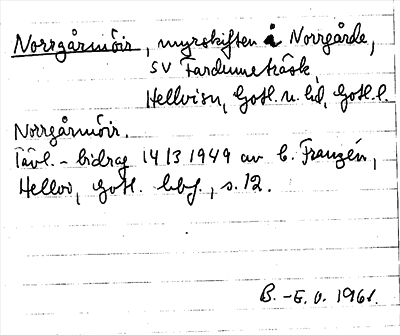 Norrgårmöir, myrskiften å Norrgårde,
SV Fardumeträsk,
Hellvi sn, Gotl. n. hd, Gotl. l.
Norrgårmöir.
Tävl.-bidrag 14/3 1949 av C. Franzén,
Hellvi, Gotl. , s. 12.
B.-E. O. 1961.